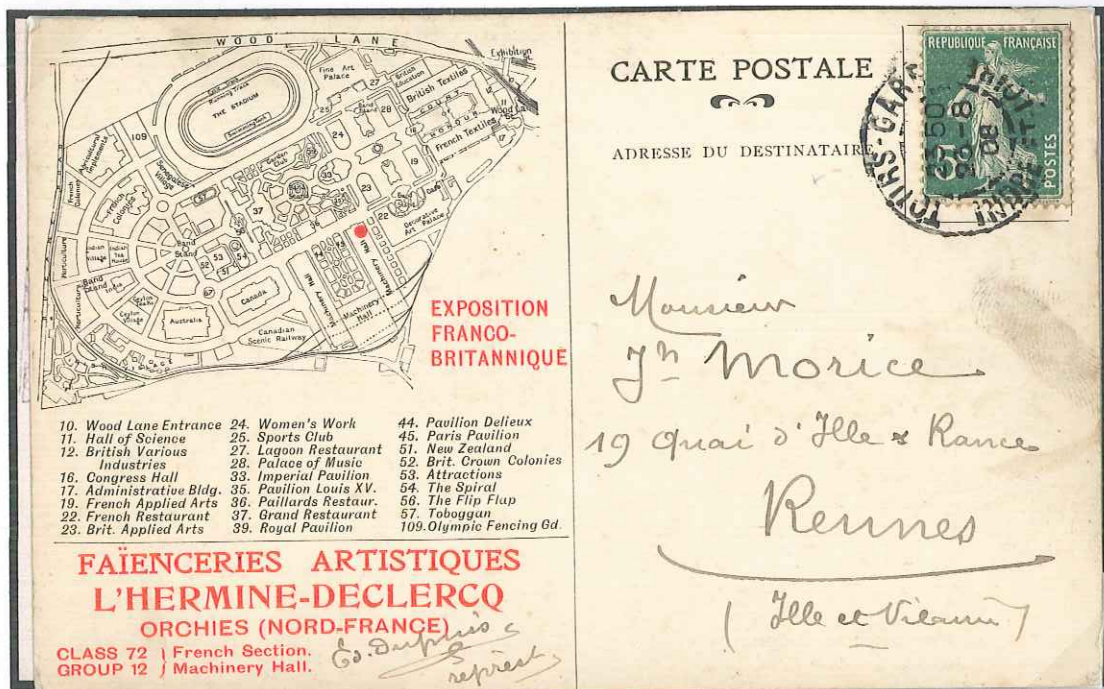 WOOD LANE
Exhibition St
Fine Art Palace
British Education
British Textiles
COURT
MOSQUE
French Textiles
Wood La
Cycle Track
Running Track
THE STADIUM
Swimming Bath
Band Stand
109
Agricultural Implements
Senegalese Village
French Colonies
French Colonies
Garden Club
Band Stand
Band Stand
Cafe
Decorative Art Palace
Horticulture
Indian Village
Indian Tea House
Band Stand
Band Stand
India
Horticulture
Ceylon Village
Australia
Canada
Canadian Scenic Railway
Machinery Hall
Machinery Hall
Machinery Hall
EXPOSITION
FRANCO-
BRITANNIQUE
10. Wood Lane Entrance
11. Hall of Science
12. British Various
Industries
16. Congress Hall
17. Administrative Bldg.
19. French Applied Arts
22. French Restaurant
23. Brit. Applied Arts
24. Women's Work
25. Sports Club
27. Lagoon Restaurant
28. Palace of Music
33. Imperial Pavilion
35. Pavilion Louis XV.
36. Paillards Restaur.
37. Grand Restaurant
39. Royal Pavilion
44. Pavilion Delieux
45. Paris Pavilion
51. New Zealand
52. Brit. Crown Colonies
53. Attractions
54. The Spiral
56. The Flip Flap
57. Toboggan
109. Olympic Fencing Gd.
FAÏENCERIES ARTISTIQUES
L'HERMINE-DECLERCQ
ORCHIES (NORD-FRANCE)
CLASS 72 } French Section.
GROUP 12 } Machinery Hall.
Ed. Dupuis
représt
CARTE POSTALE
ADRESSE DU DESTINATAIRE
REPUBLIQUE FRANÇAISE
5c
POSTES
TOURS-GARE
INDRE ET LOIRE
50
8
08
Monsieur
Jh Morice
19 Quai d'Ille & Rance
Rennes
(Ille et Vilaine)